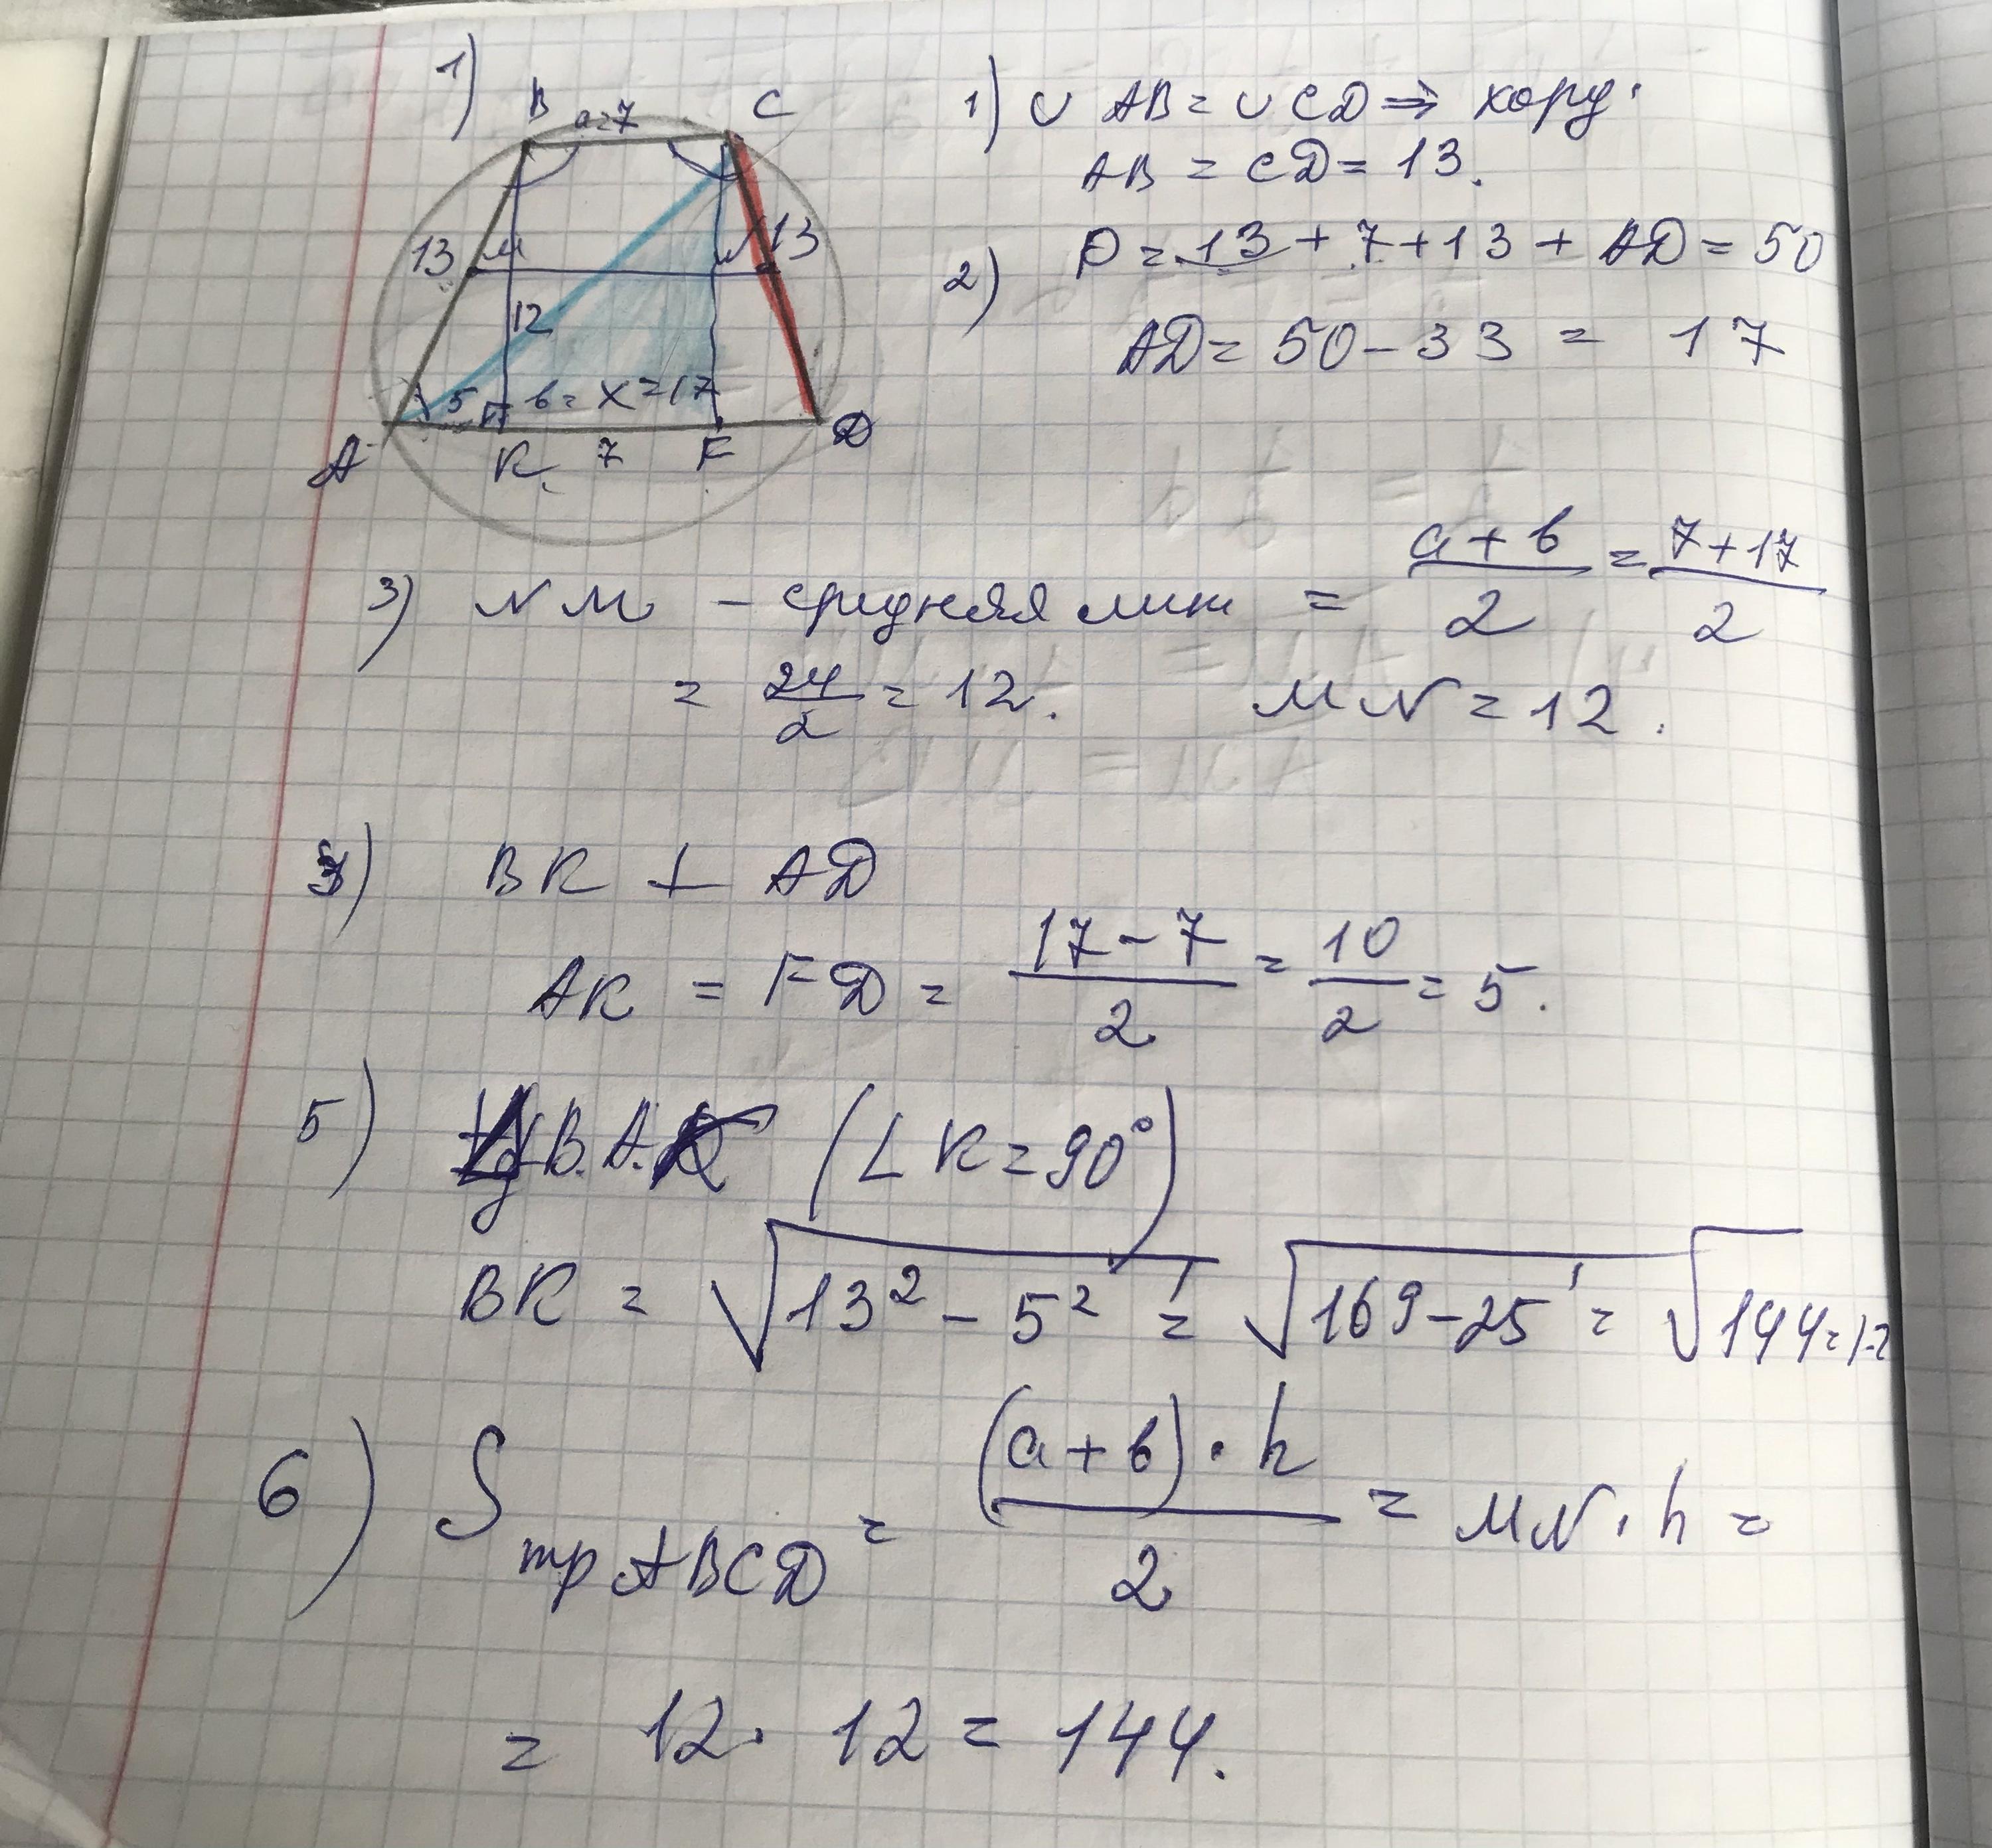 1)
B a=7 C
13 M N 13
12
5 в= x=17
A K 7 F D
1) ∪ AB = ∪ CD ⇒ хорд
AB = CD = 13.
2) P = 13 + 7 + 13 + AD = 50
AD = 50 - 33 = 17
3) NM - средняя лин = (a + в)/2 = (7 + 17)/2
= 24/2 = 12. MN = 12.
BK ⊥ AD
AK = FD = (17 - 7)/2 = 10/2 = 5.
5) BAK (∠K = 90°)
BK = √(13² - 5²) = √(169 - 25) = √144 = 12
6) S тр ABCD = ((a + в) · h)/2 = MN · h =
= 12 · 12 = 144.